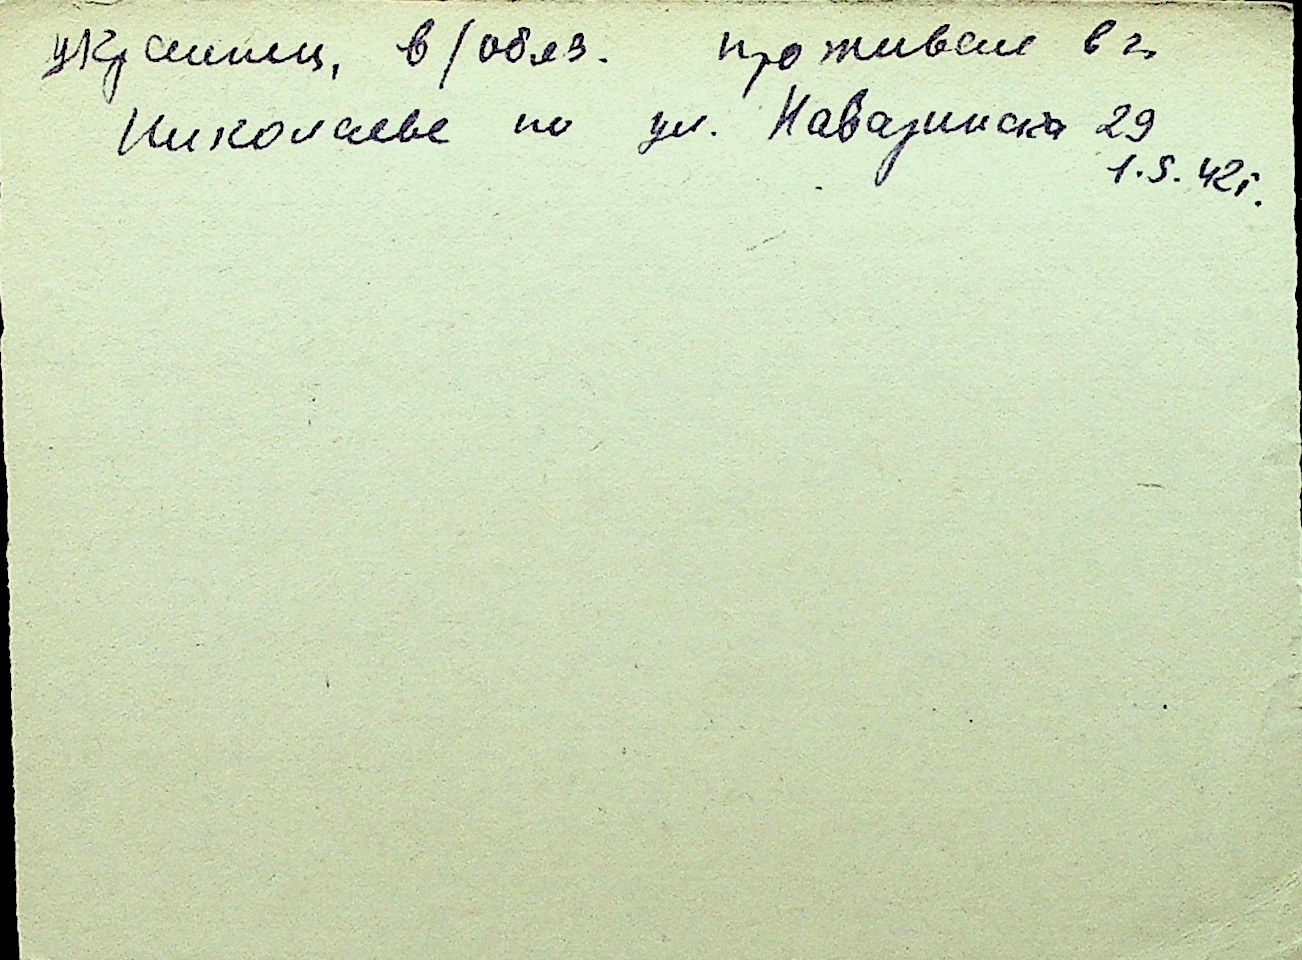 украинец, в/обяз. проживал в г.
Николаеве по ул. Наваринска 29
1.5.42г.